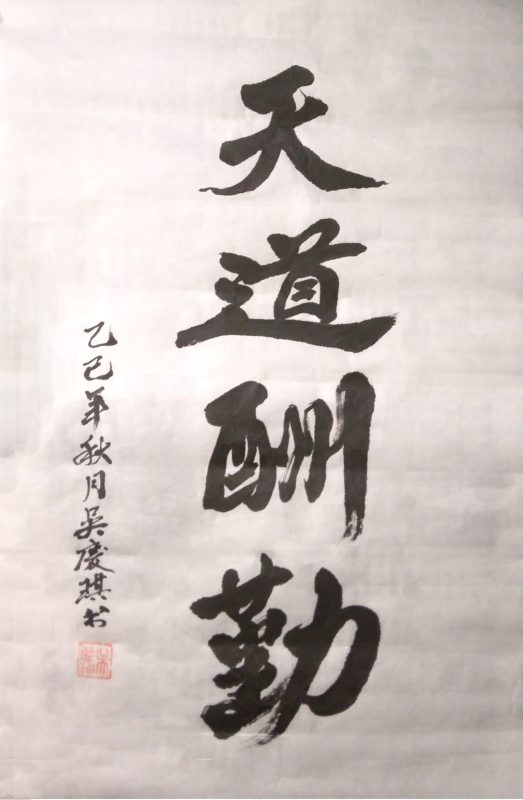 天道酬勤
乙巳年秋月吴慶琪书